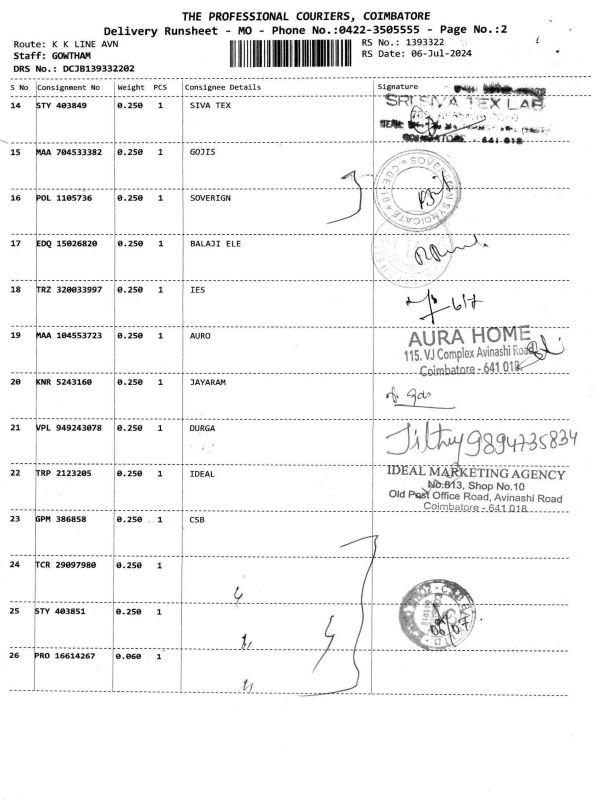 THE PROFESSIONAL COURIERS, COIMBATORE
Delivery Runsheet - MO - Phone No.:0422-3505555 - Page No.:2
Route: K K LINE AVN
RS No.: 1393322
Staff: GOWTHAM
RS Date: 06-Jul-2024
DRS No.: DCJB139332202
S No Consignment No Weight PCS Consignee Details Signature
14 STY 403849 0.250 1 SIVA TEX
SRI SIVA TEX LAB
COIMBATORE - 641 018
15 MAA 704533382 0.250 1 GOJIS
16 POL 1105736 0.250 1 SOVERIGN
SOVEREIGN SYNDICATE * CBE-18 *
17 EDQ 15026820 0.250 1 BALAJI ELE
18 TRZ 320033997 0.250 1 IES
6/7
19 MAA 104553723 0.250 1 AURO
AURA HOME
115. VJ Complex Avinashi Road
Coimbatore - 641 018
20 KNR 5243160 0.250 1 JAYARAM
21 VPL 949243078 0.250 1 DURGA
9894735834
22 TRP 2123205 0.250 1 IDEAL
IDEAL MARKETING AGENCY
No:813, Shop No.10
Old Post Office Road, Avinashi Road
Coimbatore - 641 018
23 GPM 386858 0.250 1 CSB
24 TCR 29097980 0.250 1
25 STY 403851 0.250 1
26 PRO 16614267 0.060 1